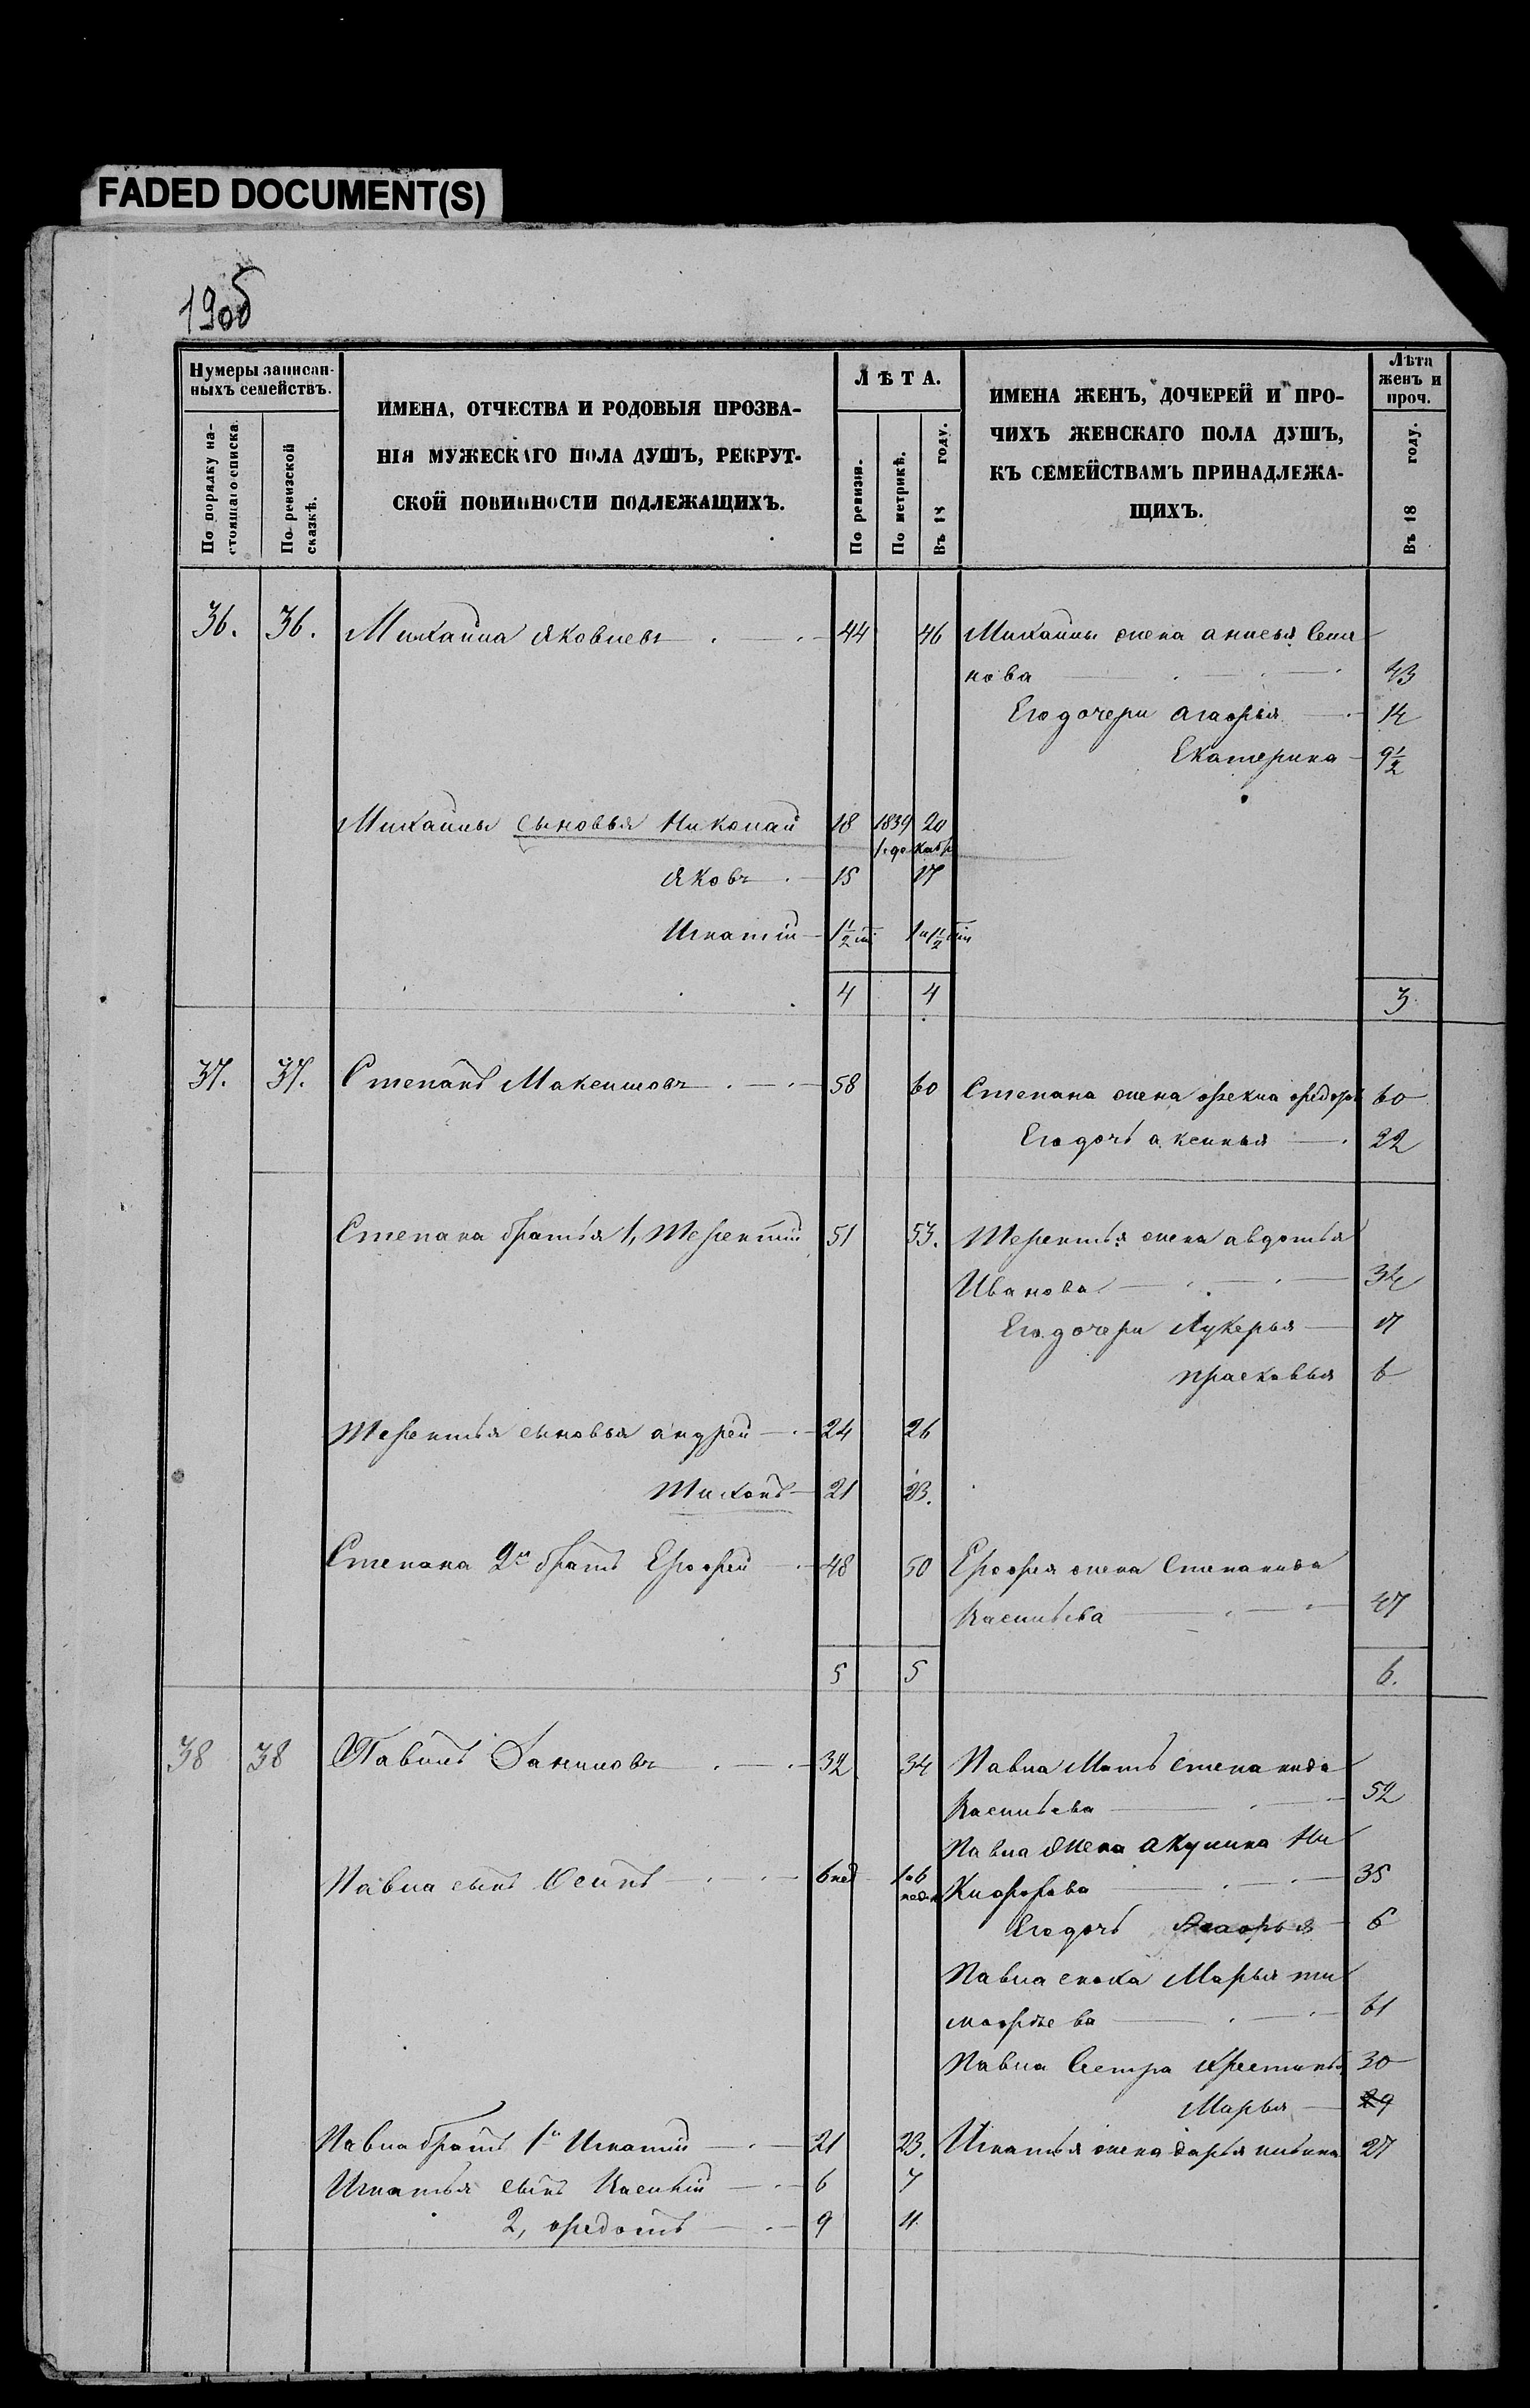 FADED DOCUMENT(S)
190об
Нумеры записан-
ныхъ семействъ.
По порядку на-
стоящаго списка.
По ревизской
сказкѣ.
ИМЕНА, ОТЧЕСТВА И РОДОВЫЯ ПРОЗВА-
НІЯ МУЖЕСКАГО ПОЛА ДУШЪ, РЕКРУТ-
СКОЙ ПОВИННОСТИ ПОДЛЕЖАЩИХЪ.
ЛѢТА.
По ревизіи.
По метрикѣ.
Въ 18 году.
ИМЕНА ЖЕНЪ, ДОЧЕРЕЙ И ПРО-
ЧИХЪ ЖЕНСКАГО ПОЛА ДУШЪ,
КЪ СЕМЕЙСТВАМЪ ПРИНАДЛЕЖА-
ЩИХЪ.
Лѣта
женъ и
проч.
Въ 18 году.
36. 36. Михаила Яковлевъ 44 46 Михаилы жена анисья Семе
нова 43
Его дочери агафья 14
Екатерина 9 1/2
Михаилы сыновья Николай 18 1839 20
1 декабр
Яковъ 15 17
Игнатій
4 4 3
37. 37. Степанъ Максимовъ 58 60 Степана жена фекла федоро 60
Его дочь аксинья 22
Степана братья 1, Терентій 51 53. Терентья жена авдотья
Иванова 34
Его дочери Лукерья 17
прасковья 6
Терентья сыновья андрей 24 26
Тихонъ 21 23.
Степана 2й братъ Ерофей 48 50 Ерофея жена Степанида
Васильева 47
5 5 6.
38 38 Павелъ Даниловъ 32 34 Павла Мать степанида
Васильева 52
Павла жена акулина Ни
Павла сынъ Осипъ 6 нед 1 и 6
кифорова 35
недел
Его дочь Агафья 6
Павла сноха Марья ти
мофѣева 61
Павла Сестра Кристинья 30
Марья 29
Павла братъ 1й Игнатій 21 23. Игнатья жена дарья ильина 27
Игнатья сынъ Василій 6 7
2, федотъ 9 11